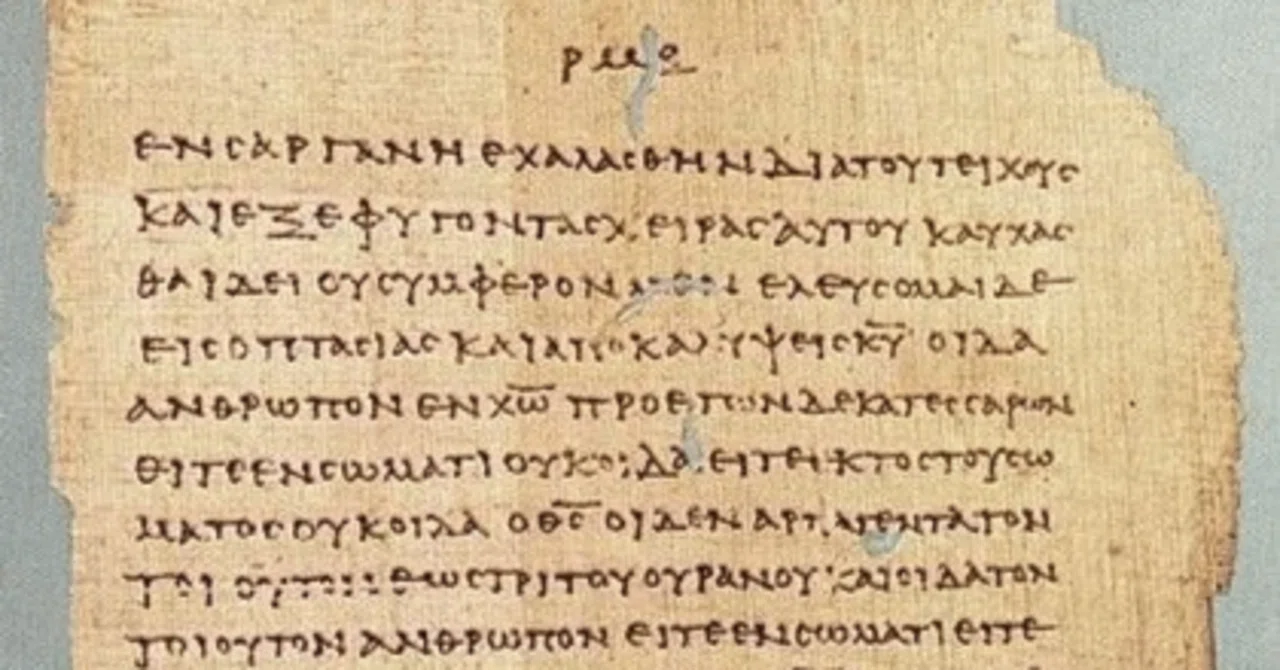 ρμο
ΕΝ ϹΑΡΓΑΝΗ ΕΧΑΛΑϹΘΗΝ ΔΙΑ ΤΟΥ ΤΕΙΧΟΥϹ
ΚΑΙ ΕΞΕΦΥΓΟΝ ΤΑϹ ΧΕΙΡΑϹ ΑΥΤΟΥ ΚΑΥΧΑϹ
ΘΑΙ ΔΕΙ ΟΥ ϹΥΜΦΕΡΟΝ ΕΛΕΥϹΟΜΑΙ ΔΕ
ΕΙϹ ΟΠΤΑϹΙΑϹ ΚΑΙ ΑΠΟΚΑΛΥΨΕΙϹ Κ̅Υ̅ ΟΙΔΑ
ΑΝΘΡΩΠΟΝ ΕΝ Χ̅Ω̅ ΠΡΟ ΕΤΩΝ ΔΕΚΑΤΕϹϹΑΡΩΝ
ΕΙΤΕ ΕΝ ϹΩΜΑΤΙ ΟΥΚ ΟΙΔΑ ΕΙΤΕ ΕΚΤΟϹ ΤΟΥ ϹΩ
ΜΑΤΟϹ ΟΥΚ ΟΙΔΑ Ο Θ̅Ϲ̅ ΟΙΔΕΝ ΑΡΠΑΓΕΝΤΑ ΤΟΝ
ΕΩϹ ΤΡΙΤΟΥ ΟΥΡΑΝΟΥ ΚΑΙ ΟΙΔΑ ΤΟΝ
ΤΟΙΟΥΤΟΝ ΑΝΘΡΩΠΟΝ ΕΙΤΕ ΕΝ ϹΩΜΑΤΙ ΕΙΤΕ